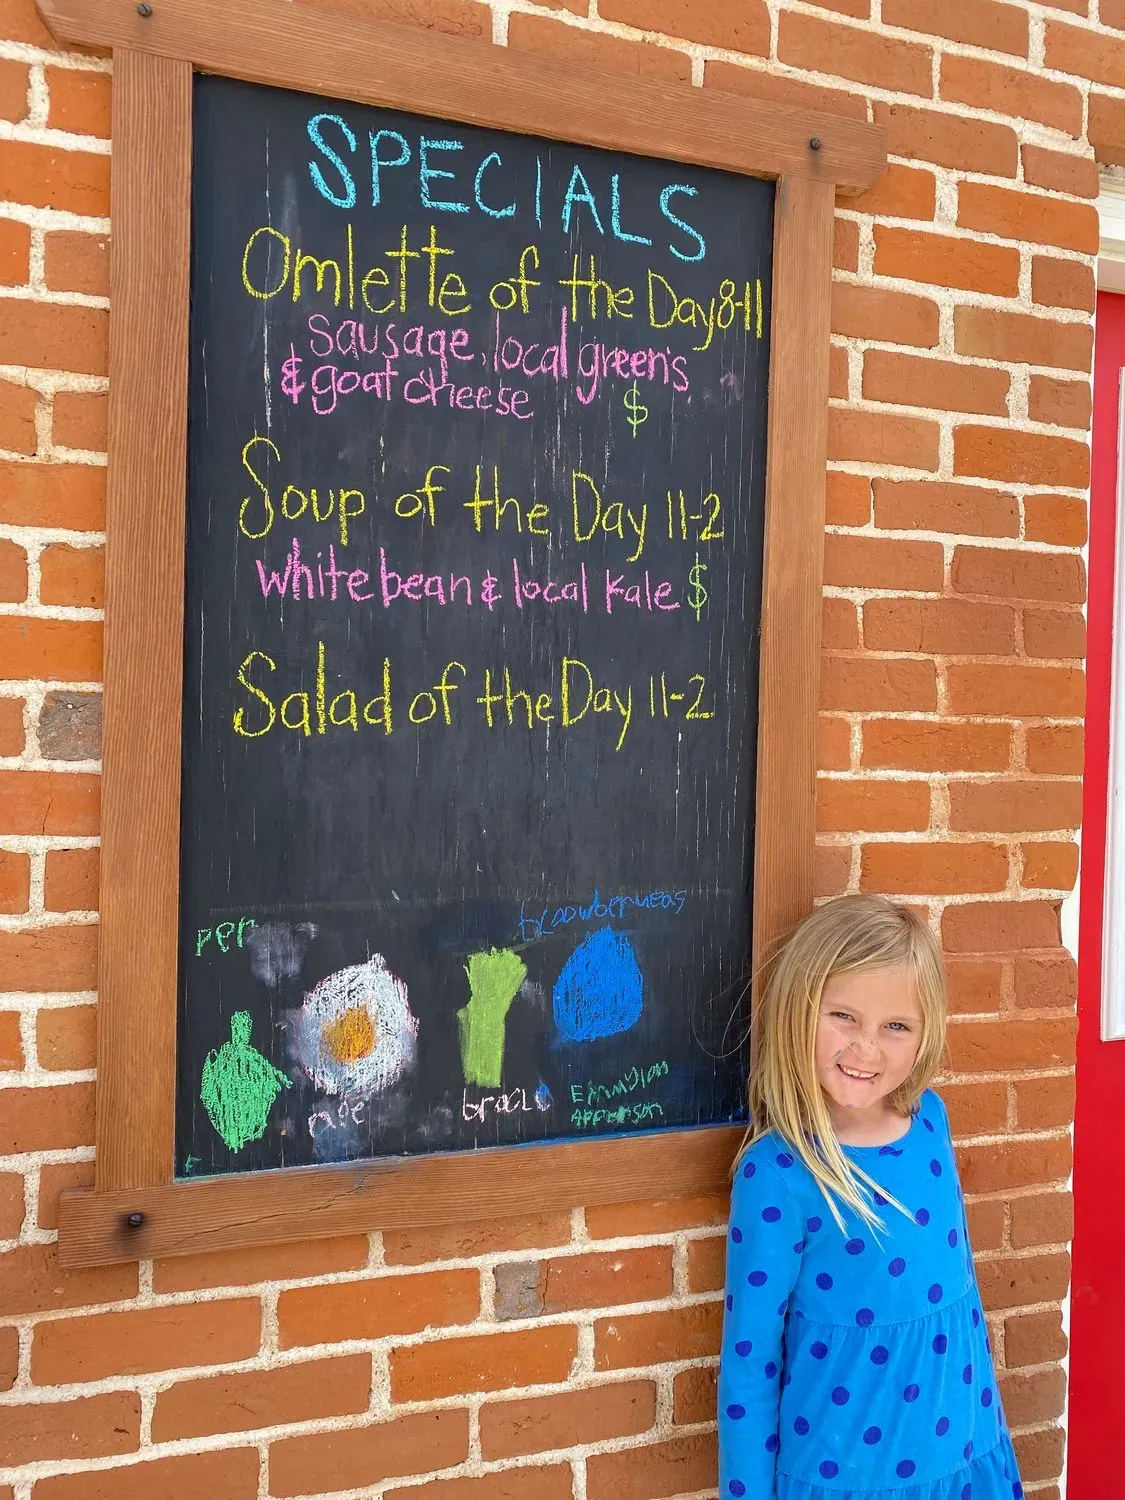 SPECIALS
Omlette of the Day 8-11
sausage, local green's
& goat cheese $
Soup of the Day 11-2
white bean & local kale $
Salad of the Day 11-2
per